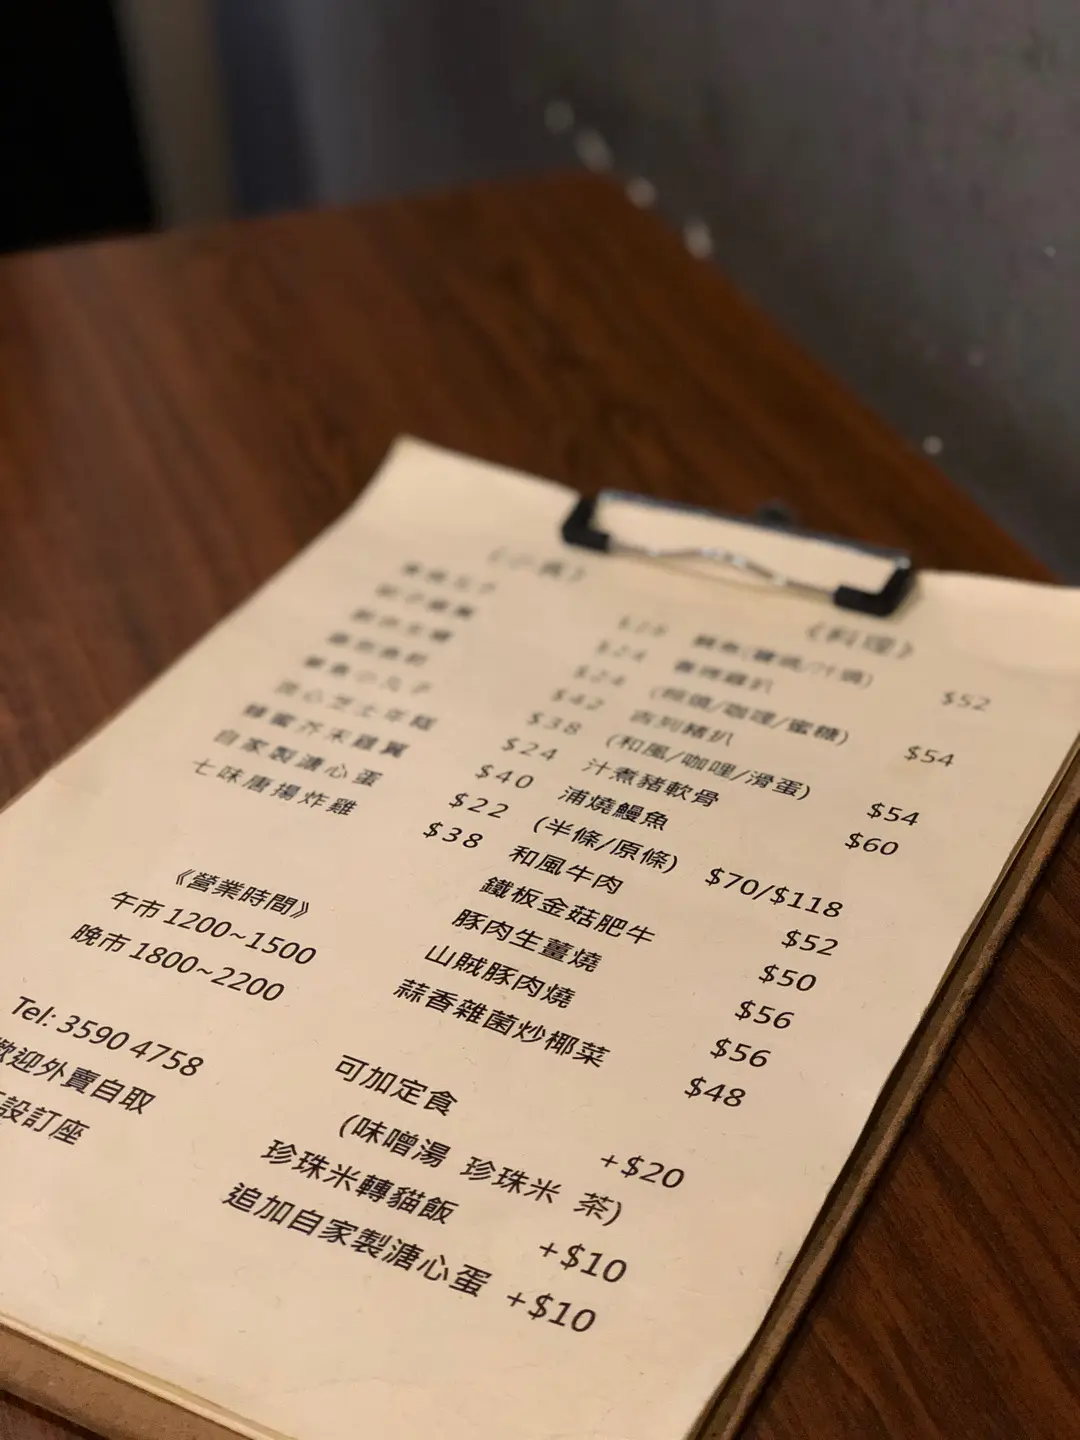 《小食》
流心芝士年糕
蜂蜜芥末雞翼
自家製溏心蛋
七味唐揚炸雞
$24
$24
$42
$38
$24
$40
$22
$38
《營業時間》
午市 1200~1500
晚市 1800~2200
Tel: 3590 4758
歡迎外賣自取
設訂座
《料理》
$52
(照燒/咖哩/蜜糖) $54
吉列豬扒
(和風/咖哩/滑蛋) $54
汁煮豬軟骨 $60
浦燒鰻魚
(半條/原條) $70/$118
和風牛肉 $52
鐵板金菇肥牛 $50
豚肉生薑燒 $56
山賊豚肉燒 $56
蒜香雜菌炒椰菜 $48
可加定食 +$20
(味噌湯 珍珠米 茶)
珍珠米轉貓飯 +$10
追加自家製溏心蛋 +$10